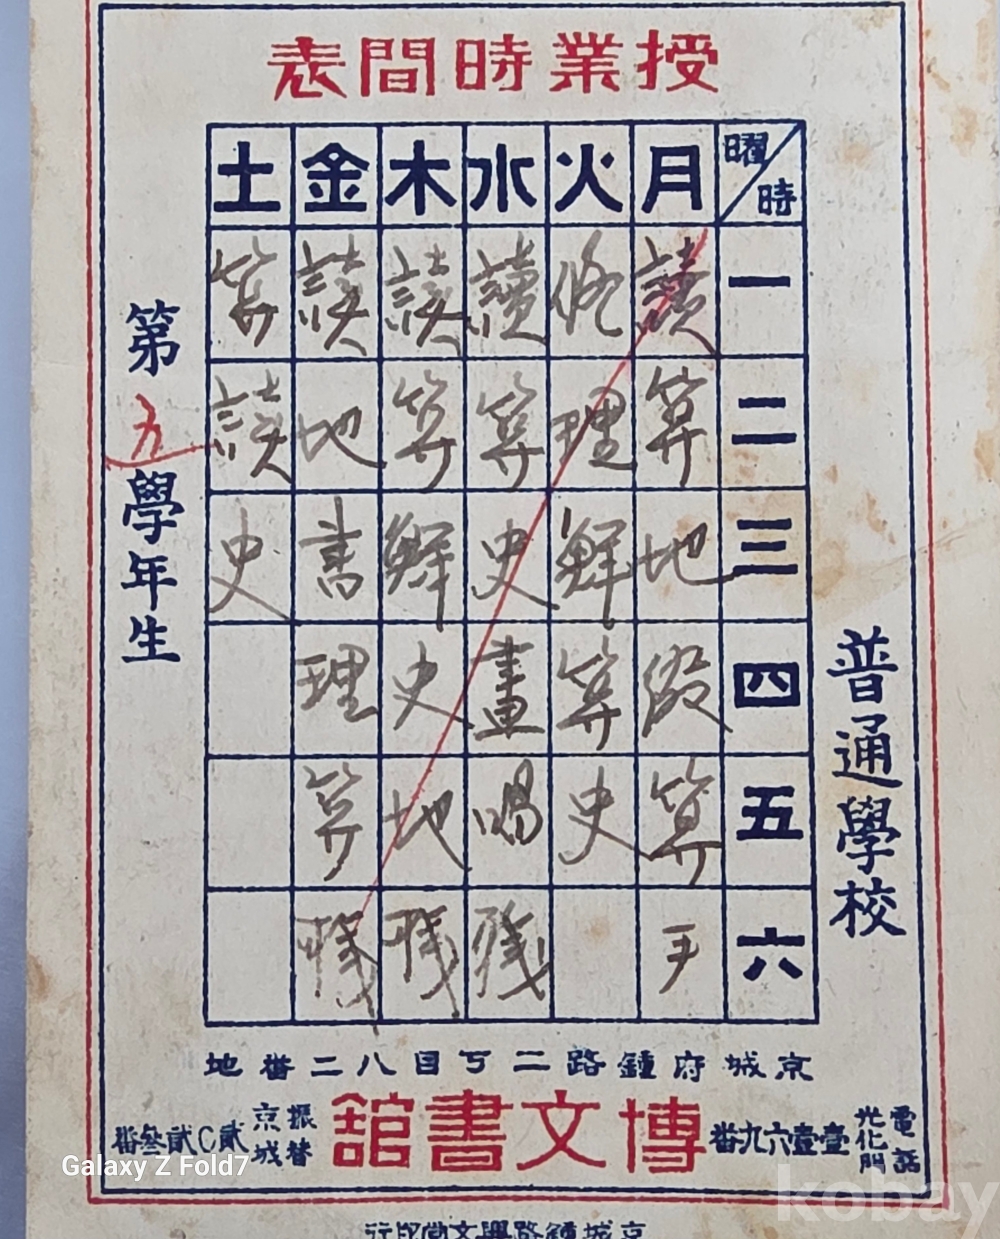 授業時間表
曜 時 月 火 水 木 金 土
一 讀 修 讀 讀 讀 算
二 算 理 算 算 地 讀
三 地 鮮 史 鮮 書 史
四 綴 算 畫 史 理
五 算 史 唱 地 算
六 手 残 残 残
普通學校
第五學年生
京城府鍾路二丁目八二番地
電話光化門壹壹六九番
博文書館
振替京城貳〇貳叁番
Galaxy Z Fold7
kobay